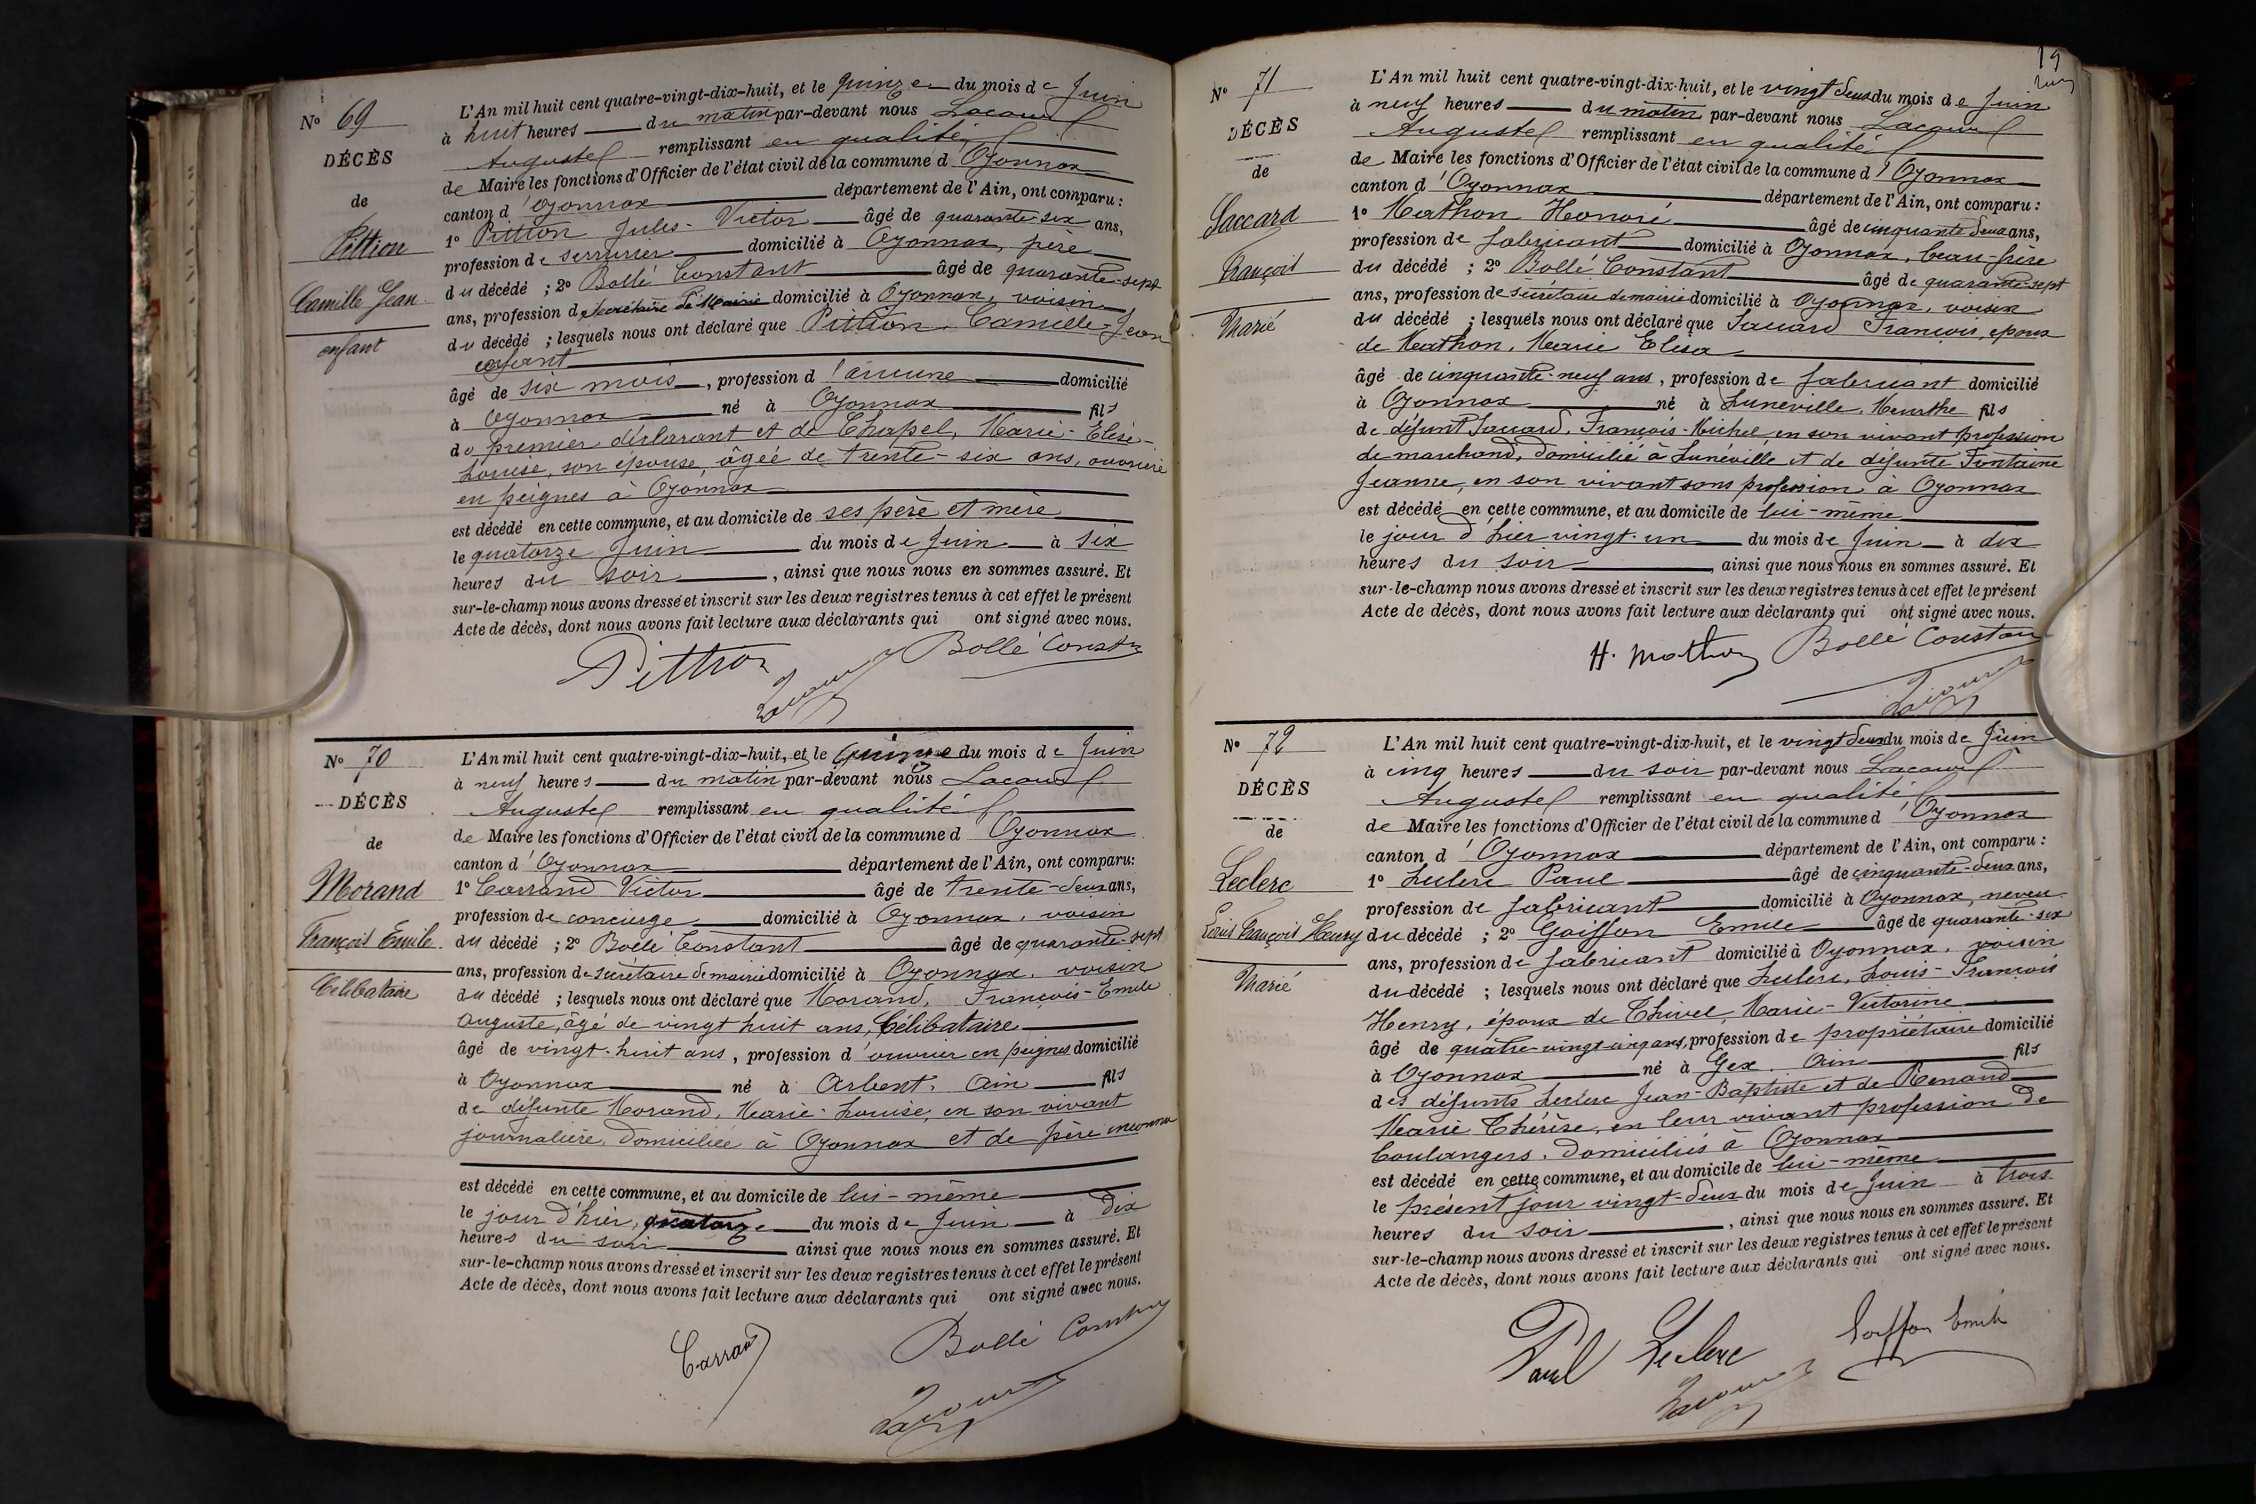 N° 69
DÉCÈS
de
Pittion
Camille Jean
enfant
L'An mil huit cent quatre-vingt-dix-huit, et le quinze du mois de Juin
à huit heures du matin par-devant nous Lacour
Auguste remplissant en qualité
de Maire les fonctions d'Officier de l'état civil de la commune d'Oyonnax
canton d'Oyonnax département de l'Ain, ont comparu :
1° Pittion Jules-Victor âgé de quarante-six ans,
profession de serrurier domicilié à Oyonnax, père
du décédé ; 2° Bollé Constant âgé de quarante-sept
ans, profession de secrétaire de Mairie domicilié à Oyonnax, voisin
du décédé ; lesquels nous ont déclaré que Pittion, Camille-Jean
enfant
âgé de six mois, profession d'aucune domicilié
à Oyonnax né à Oyonnax fils
du premier déclarant et de Chapel, Marie-Elise-
Louise, son épouse, âgée de trente-six ans, ouvrière
en peignes à Oyonnax
est décédé en cette commune, et au domicile de ses père et mère
le quatorze Juin du mois de Juin à six
heures du soir, ainsi que nous nous en sommes assuré. Et
sur-le-champ nous avons dressé et inscrit sur les deux registres tenus à cet effet le présent
Acte de décès, dont nous avons fait lecture aux déclarants qui ont signé avec nous.
Pittion Bollé Constant
Lacour
N° 70
DÉCÈS
de
Morand
François Emile
Célibataire
L'An mil huit cent quatre-vingt-dix-huit, et le quinze du mois de Juin
à neuf heures du matin par-devant nous Lacour
Auguste remplissant en qualité
de Maire les fonctions d'Officier de l'état civil de la commune d'Oyonnax
canton d'Oyonnax département de l'Ain, ont comparu :
1° Carrand Victor âgé de trente-deux ans,
profession de concierge domicilié à Oyonnax, voisin
du décédé ; 2° Bollé Constant âgé de quarante-sept
ans, profession de secrétaire de mairie domicilié à Oyonnax, voisin
du décédé ; lesquels nous ont déclaré que Morand, François-Emile
Auguste, âgé de vingt huit ans, Célibataire
âgé de vingt-huit ans, profession d'ouvrier en peignes domicilié
à Oyonnax né à Arbent, Ain fils
de défunte Morand, Marie-Louise, en son vivant
journalière, domiciliée à Oyonnax et de père inconnu
est décédé en cette commune, et au domicile de lui-même
le jour d'hier, quatorze du mois de Juin à dix
heures du soir ainsi que nous nous en sommes assuré. Et
sur-le-champ nous avons dressé et inscrit sur les deux registres tenus à cet effet le présent
Acte de décès, dont nous avons fait lecture aux déclarants qui ont signé avec nous.
Carrand Bollé Constant
Lacour
19
N° 71
DÉCÈS
de
Saccard
François
Marié
L'An mil huit cent quatre-vingt-dix-huit, et le vingt deux du mois de Juin
à neuf heures du matin par-devant nous Lacour
Auguste remplissant en qualité
de Maire les fonctions d'Officier de l'état civil de la commune d'Oyonnax
canton d'Oyonnax département de l'Ain, ont comparu :
1° Mathon Honoré âgé de cinquante deux ans,
profession de fabricant domicilié à Oyonnax, beau-frère
du décédé ; 2° Bollé Constant âgé de quarante-sept
ans, profession de secrétaire de mairie domicilié à Oyonnax, voisin
du décédé ; lesquels nous ont déclaré que Saccard François, époux
de Mathon, Marie Elisa
âgé de cinquante-neuf ans, profession de fabricant domicilié
à Oyonnax né à Lunéville, Meurthe fils
de défunt Saccard, François-Michel, en son vivant profession
de marchand, domicilié à Lunéville et de défunte Fontaine
Jeanne, en son vivant sans profession à Oyonnax
est décédé en cette commune, et au domicile de lui-même
le jour d'hier vingt-un du mois de Juin à dix
heures du soir ainsi que nous nous en sommes assuré. Et
sur-le-champ nous avons dressé et inscrit sur les deux registres tenus à cet effet le présent
Acte de décès, dont nous avons fait lecture aux déclarants qui ont signé avec nous.
H. Mathon Bollé Constant
Lacour
N° 72
DÉCÈS
de
Leclerc
Louis François Henry
Marié
L'An mil huit cent quatre-vingt-dix-huit, et le vingt deux du mois de Juin
à cinq heures du soir par-devant nous Lacour
Auguste remplissant en qualité
de Maire les fonctions d'Officier de l'état civil de la commune d'Oyonnax
canton d'Oyonnax département de l'Ain, ont comparu :
1° Leclerc Paul âgé de cinquante-deux ans,
profession de fabricant domicilié à Oyonnax, neveu
du décédé ; 2° Goiffon Emile âgé de quarante-six
ans, profession de fabricant domicilié à Oyonnax, voisin
du décédé ; lesquels nous ont déclaré que Leclerc, Louis-François
Henry, époux de Thivel, Marie-Victorine
âgé de quatre-vingt-cinq ans, profession de propriétaire domicilié
à Oyonnax né à Gex, Ain fils
des défunts Leclerc Jean-Baptiste et de Renand
Marie Thérèse, en leur vivant profession de
boulangers, domiciliés à Oyonnax
est décédé en cette commune, et au domicile de lui-même
le présent jour vingt-deux du mois de Juin à trois
heures du soir, ainsi que nous nous en sommes assuré. Et
sur-le-champ nous avons dressé et inscrit sur les deux registres tenus à cet effet le présent
Acte de décès, dont nous avons fait lecture aux déclarants qui ont signé avec nous.
Paul Leclerc Goiffon Emile
Lacour